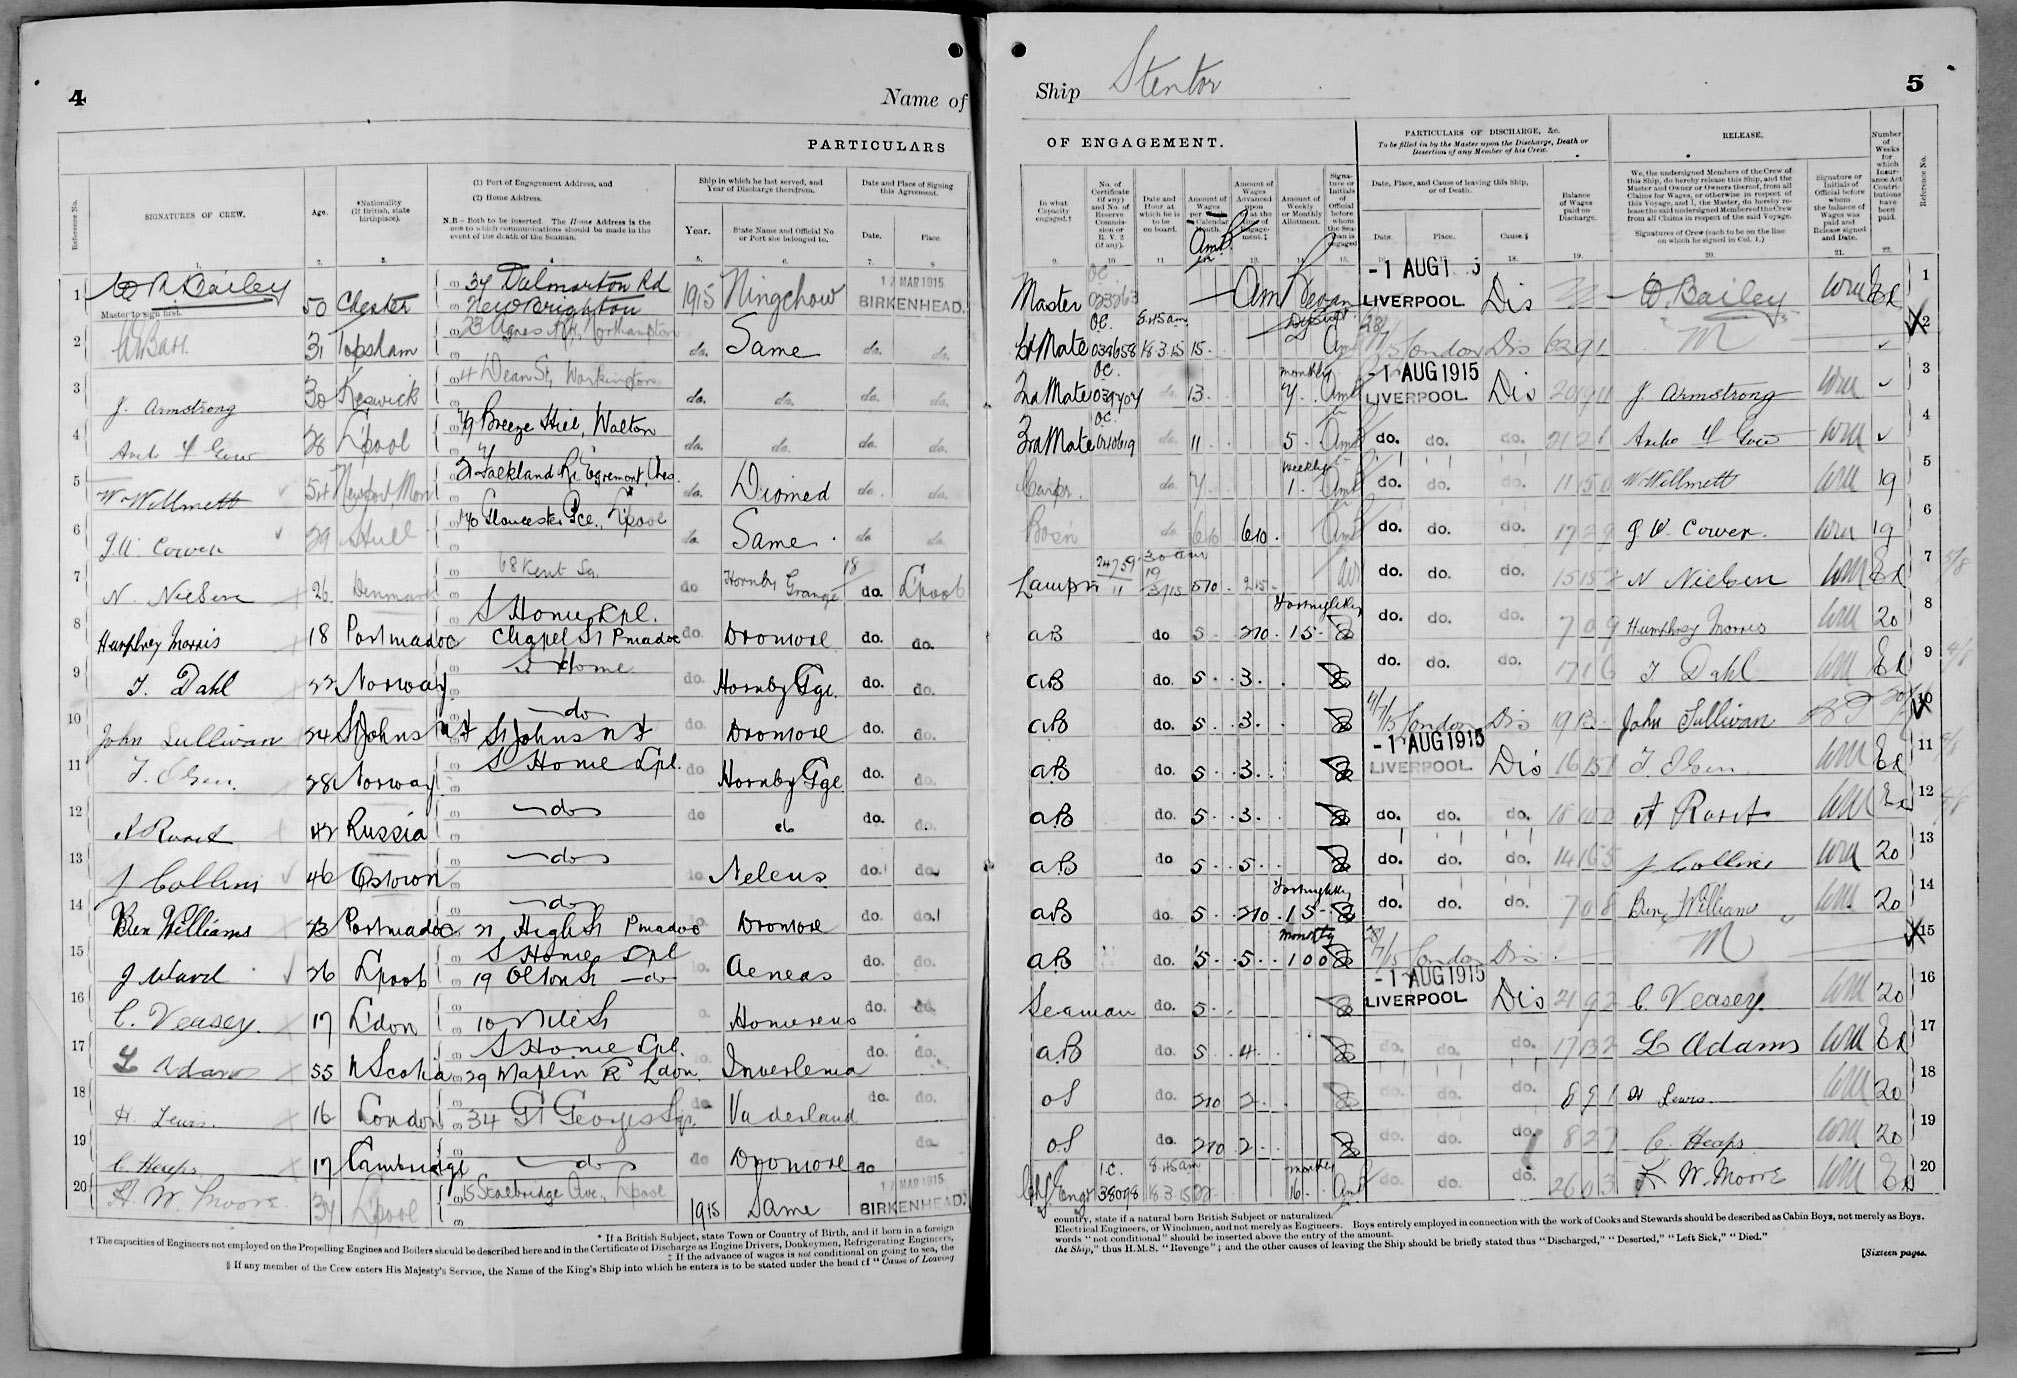 4
Name of
PARTICULARS
Reference No.
SIGNATURES OF CREW.
Age.
*Nationality (If British, state birthplace).
(1) Port of Engagement Address, and
(2) Home Address.
N.B.—Both to be inserted. The Home Address is the one to which communications should be made in the event of the death of the Seaman.
Ship in which he last served, and Year of Discharge therefrom.
Year.
State Name and Official No. or Port she belonged to.
Date and Place of Signing this Agreement.
Date.
Place.
1 W R Bailey 50 Chester 34 Dalmorton Rd New Brighton 1915 Ningchow MAR 1915 BIRKENHEAD.
Master to sign first.
2 31 Topsham 23 Agnes Northampton do. Same do. do.
3 J. Armstrong 30 Keswick 4 Dean St, Workington do. do. do. do.
4 28 L'pool 79 Breeze Hill, Walton do. do. do. do.
5 W Willmett 54 Newport, Mon 21 Falkland Rd. Egremont, Ches. do. Diomed do. do.
6 J.W Cowen 29 Hull 170 Gloucester Pce., L'pool do. Same do. do.
7 N. Nielsen 26 Denmark 68 Kent Sq. do Hornby Grange 18 do. L'pool
8 Humphrey Morris 18 Portmadoc S Home Lpl. Chapel St Pmadoc do. Dromore do. do.
9 T. Dahl 22 Norway S Home do. Hornby Gge. do. do.
10 John Sullivan 24 St Johns N F do St Johns N F do. Dromore do. do.
11 T. Olsen. 28 Norway S Home Lpl. do. Hornby Gge do. do.
12 42 Russia do do do do. do.
13 J Collins 46 do do Neleus do. do.
14 Ben Williams 23 Portmadoc do 21 High St Pmadoc do. Dromore do. do.
15 J Ward 26 L'pool S Home Lpl 19 Olton St do do. Aeneas do. do.
16 C. Veasey. 17 L'don 10 Nile St Homereus do. do.
17 L Adams 55 N Scotia S Home Lpl. 29 Maplin Rd L'don. do. do.
18 H. Lewis. 16 London 34 Gt Georges Sqr. do. Vaderland do. do.
19 C Heaps 17 Cambridge do do Dromore do do
20 H. W. Moore. 34 L'pool 15 Stalbridge Ave, L'pool 1915 Same MAR 1915 BIRKENHEAD.
* If a British Subject, state Town or Country of Birth, and if born in a foreign
† The capacities of Engineers not employed on the Propelling Engines and Boilers should be described here and in the Certificate of Discharge as Engine Drivers, Donkeymen, Refrigerating Engineers,
‡ If the advance of wages is not conditional on going to sea, the
§ If any member of the Crew enters His Majesty's Service, the Name of the King's Ship into which he enters is to be stated under the head of "Cause of Leaving
Ship Stentor
5
OF ENGAGEMENT.
PARTICULARS OF DISCHARGE, &c.
To be filled in by the Master upon the Discharge, Death or Desertion of any Member of his Crew.
RELEASE.
Number of Weeks for which Insurance Act Contributions have been paid.
Reference No.
In what Capacity engaged.†
No. of Certificate (if any) and No. of Reserve Commission or R. V. 2 (if any).
Date and Hour at which he is to be on board.
Amount of Wages per Calendar Month.
Amount of Wages Advanced upon at the of Engagement.‡
Amount of Weekly or Monthly Allotment.
Signature or Initials of Official before whom the Seaman is engaged
Date, Place, and Cause of leaving this Ship, or of Death.
Date.
Place.
Cause.§
Balance of Wages paid on Discharge.
We, the undersigned Members of the Crew of this Ship, do hereby release this Ship, and the Master and Owner or Owners thereof, from all Claims for Wages, or otherwise in respect of this Voyage, and I, the Master, do hereby release the said undersigned Members of the Crew from all Claims in respect of the said Voyage.
Signatures of Crew (each to be on the line on which he signed in Col. 1.)
Signature or Initials of Official before whom the balance of Wages was paid and Release signed and Date.
Master OC -1 AUG 1 5 LIVERPOOL Dis W. Bailey Ex 1
1st Mate OC 039658 8.45am 18.3.15 15. London Dis 62 9 1 M 2
2nd Mate OC do. 13. monthly 7. -1 AUG 1915 LIVERPOOL Dis J Armstrong 3
3rd Mate OC do. 11 5. do. do. do. 21 2 1 4
Carpr. do. 7. weekly 1. do. do. do. 11 15 0 W Willmett 19 5
Bosn do. 6 10 6 10. do. do. do. J W. Cowen. 19 6
Lampr 5 10. 2 15. do. do. do. N Nielsen Ex 7
AB do 5. 2 10. Fortnightly 15. do. do. do. 7 0 9 Humphrey Morris 20 8
AB do. 5. 3. do. do. do. 17 1 6 T Dahl Ex 9
AB do. 5. 3. London Dis 19 13 John Sullivan 10
AB do. 5. 3. -1 AUG 1915 LIVERPOOL Dis T. Olsen Ex 11
AB do. 5. 3. do. do. do. Ex 12
AB do 5. 5. do. do. do. J Collins 20 13
AB do. 5. 2 10. Fortnightly 15. do. do. do. 7 0 8 Ben Williams 20 14
AB do. 5. 5. monthly 1 0 0 London Dis M 15
Seaman do. 5. -1 AUG 1915 LIVERPOOL Dis 21 9 2 C. Veasey. 20 16
AB do. 5. 4. do. do. do. L Adams Ex 17
OS do. 2 10 2. do. do. do. 8 9 1 H Lewis. 20 18
OS do. 2 10 2. do. do. do. 8 2 7 C. Heaps 20 19
Chf. Engr 1.C. 38078 8.45am 18.3.15 22. monthly 16. do. do. do. 26 0 3 H. W. Moore Ex 20
country, state if a natural born British Subject or naturalized.
Electrical Engineers, or Winchmen, and not merely as Engineers. Boys entirely employed in connection with the work of Cooks and Stewards should be described as Cabin Boys, not merely as Boys.
words "not conditional" should be inserted above the entry of the amount.
the Ship," thus H.M.S. "Revenge"; and the other causes of leaving the Ship should be briefly stated thus "Discharged," "Deserted," "Left Sick," "Died."
[Sixteen pages.